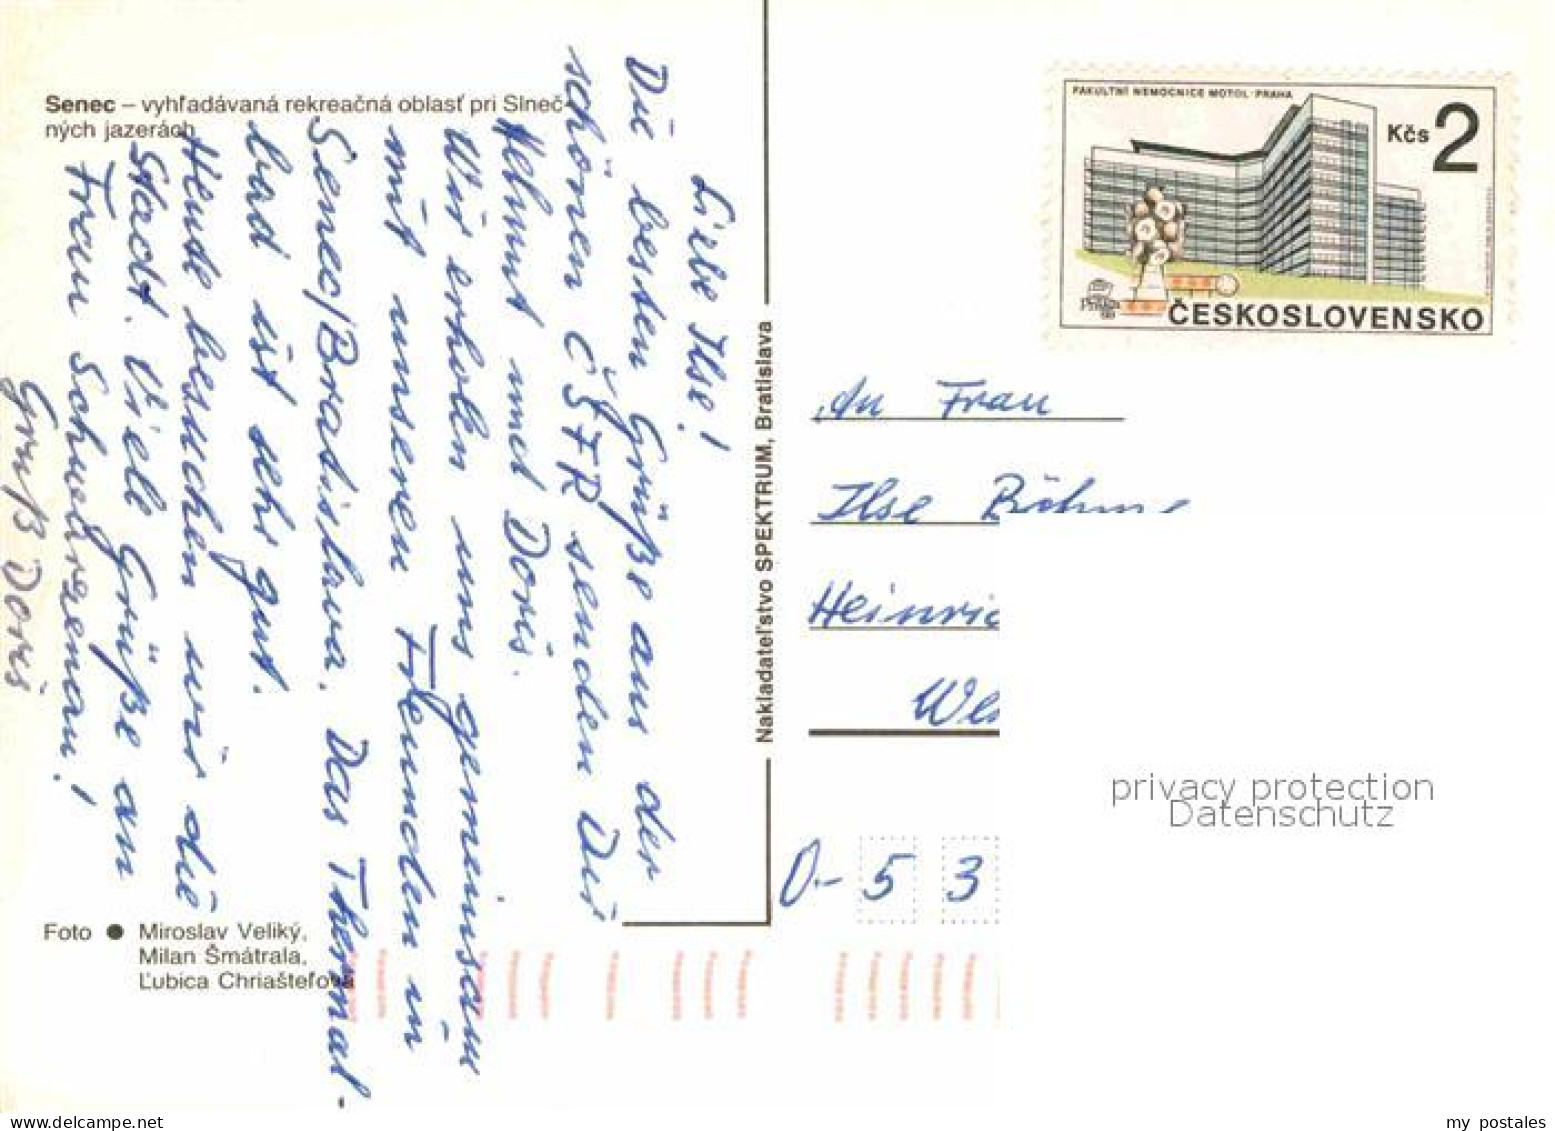 Senec – vyhľadávaná rekreačná oblasť pri Slneč-
ných jazerách
Liebe Ilse!
Die besten Grüße aus der
schönen ČSFR senden Dir
Helmut und Doris.
Wir erholen uns gemeinsam
mit unseren Freunden in
Senec/Bratislava. Das Thermal-
bad ist sehr gut.
Heute besuchen wir die
Stadt. Viele Grüße an
Frau
Gruß Doris
Foto ● Miroslav Veliký,
Milan Šmátrala,
Ľubica Chriašteľová
Nakladateľstvo SPEKTRUM, Bratislava
FAKULTNÍ NEMOCNICE MOTOL PRAHA
Kčs 2
Praga
88
ČESKOSLOVENSKO
An Frau
Ilse Böhme
Heinric
We
D-53
privacy protection
Datenschutz
my postales